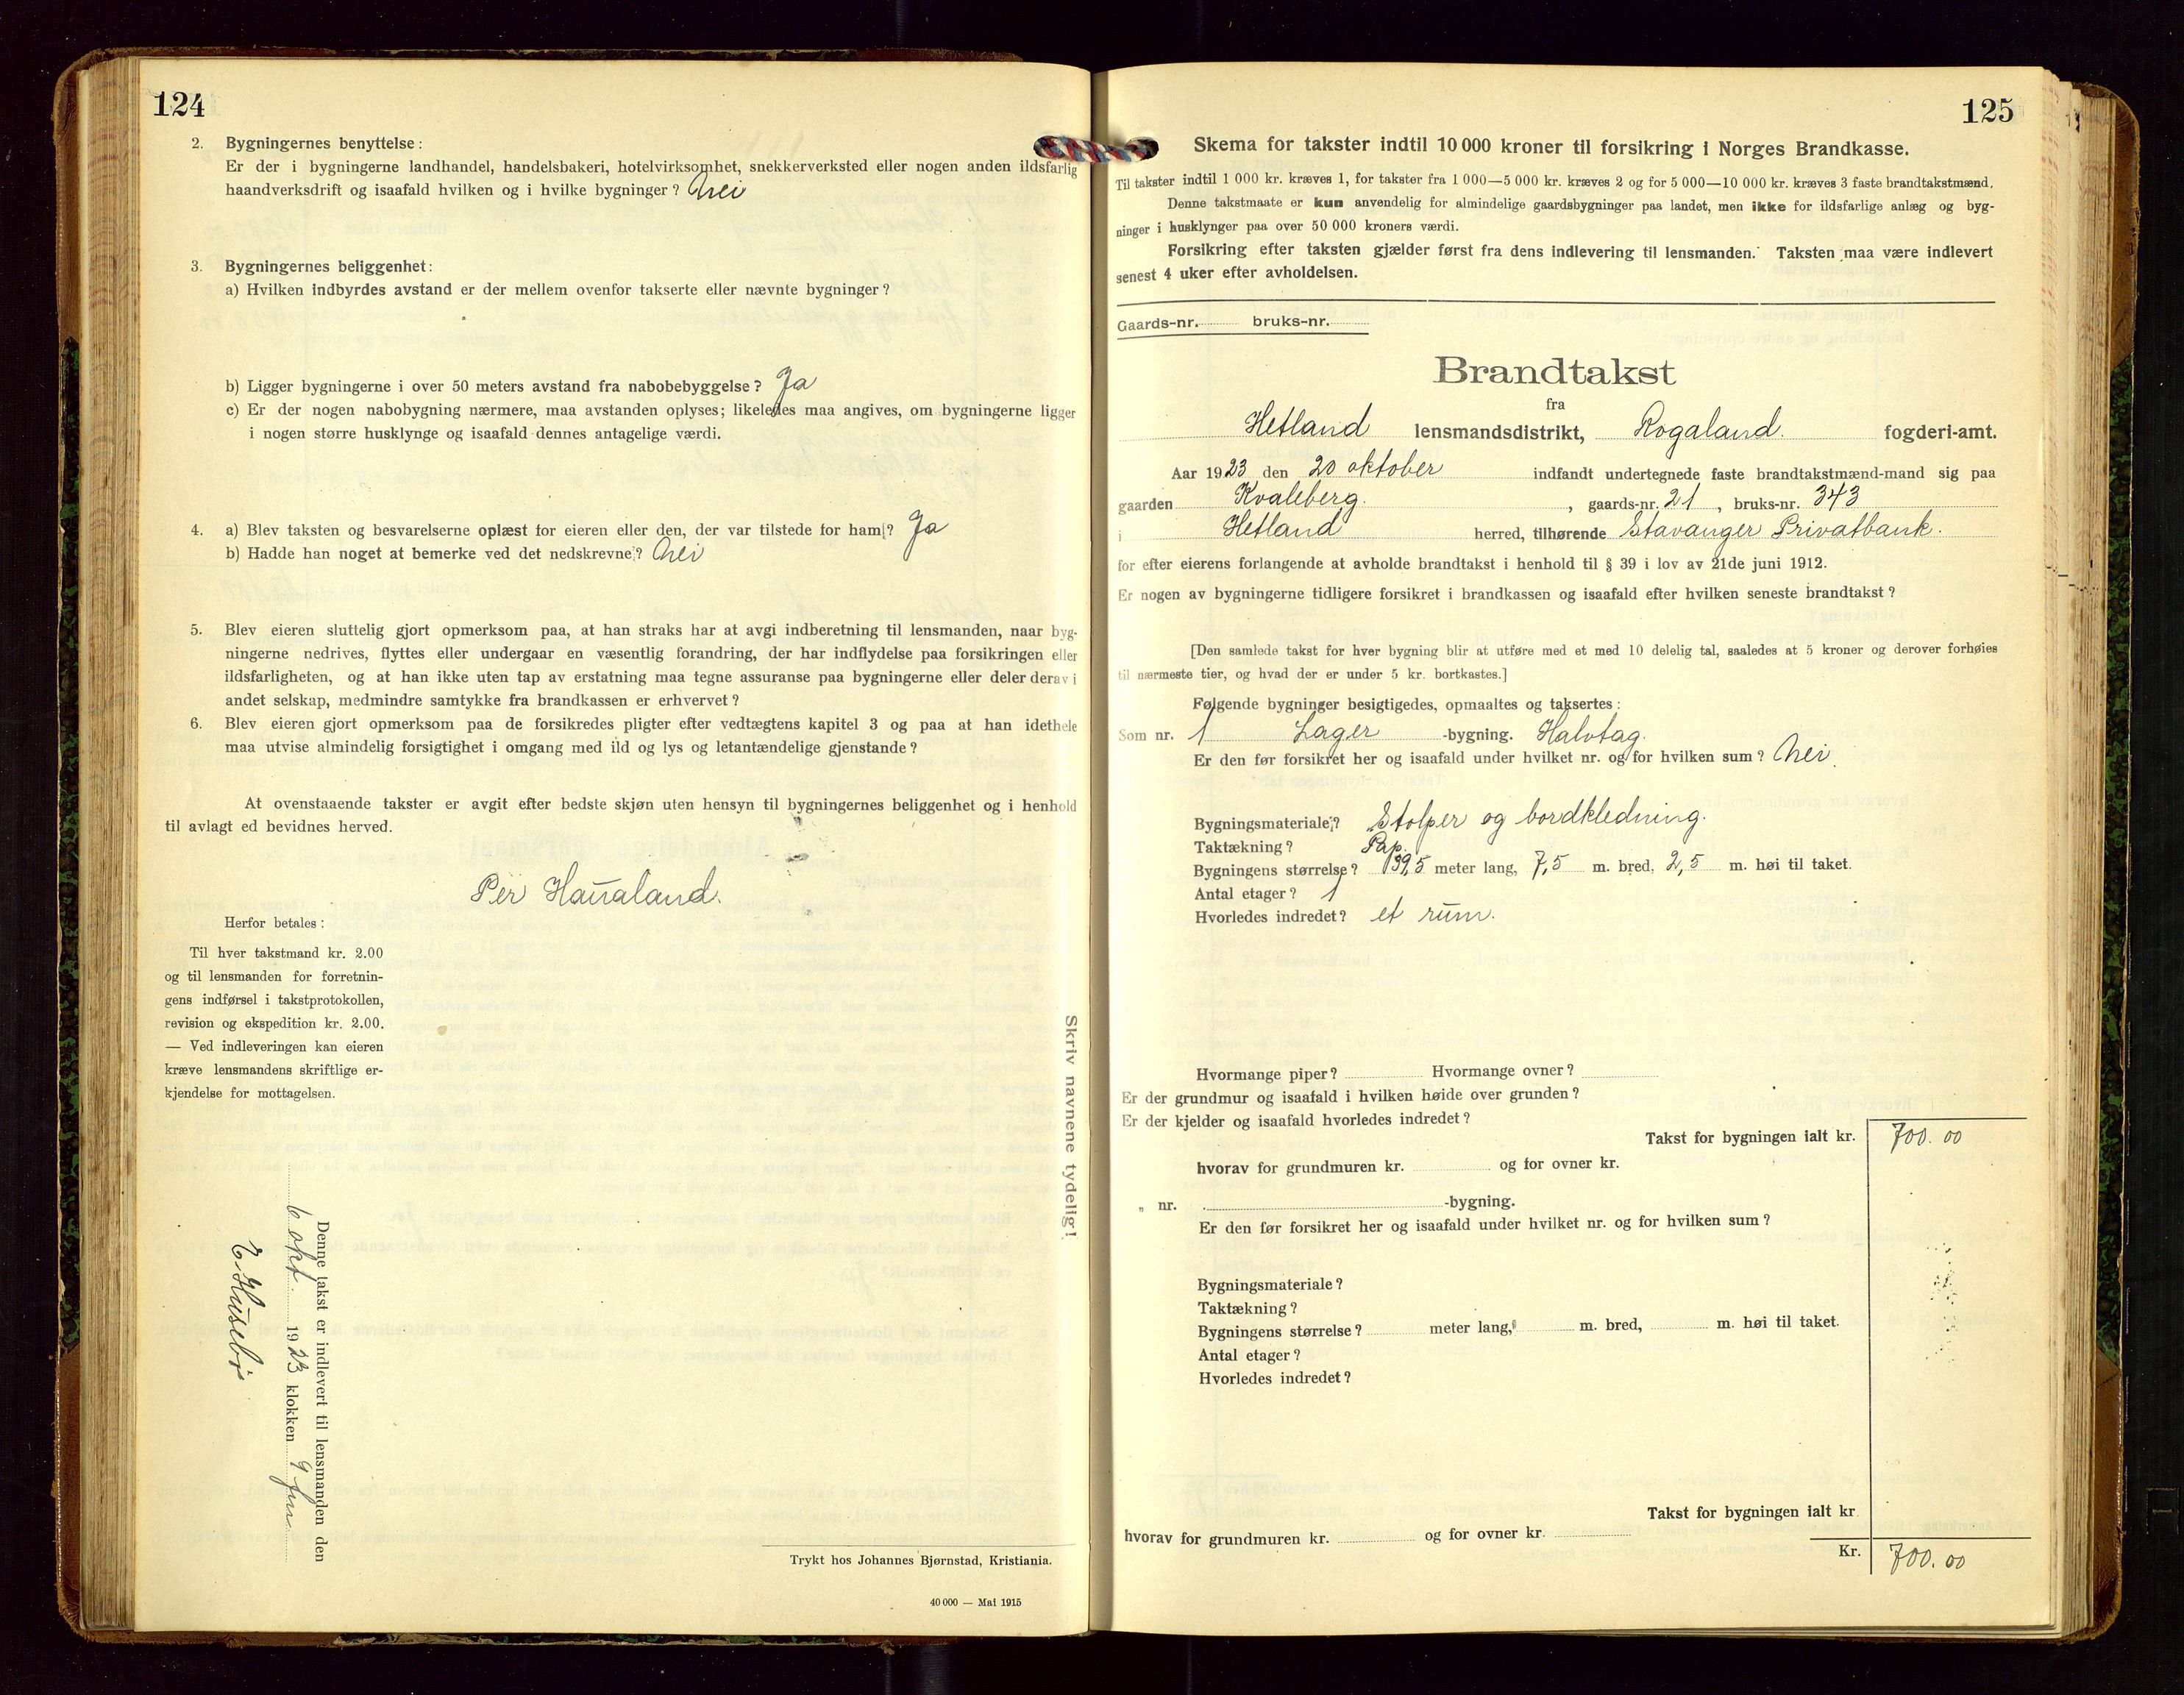 124
2. Bygningernes benyttelse:
Er der i bygningerne landhandel, handelsbakeri, hotelvirksomhet, snekkerverksted eller nogen anden ildsfarlig
haandverksdrift og isaafald hvilken og i hvilke bygninger? Nei
3. Bygningernes beliggenhet:
a) Hvilken indbyrdes avstand er der mellem ovenfor takserte eller nævnte bygninger?
b) Ligger bygningerne i over 50 meters avstand fra nabobebyggelse? Ja
c) Er der nogen nabobygning nærmere, maa avstanden oplyses; likeledes maa angives, om bygningerne ligger
i nogen større husklynge og isaafald dennes antagelige værdi.
4. a) Blev taksten og besvarelserne oplæst for eieren eller den, der var tilstede for ham? Ja
b) Hadde han noget at bemerke ved det nedskrevne? Nei
5. Blev eieren sluttelig gjort opmerksom paa, at han straks har at avgi indberetning til lensmanden, naar byg-
ningerne nedrives, flyttes eller undergaar en væsentlig forandring, der har indflydelse paa forsikringen eller
ildsfarligheten, og at han ikke uten tap av erstatning maa tegne assuranse paa bygningerne eller deler derav i
andet selskap, medmindre samtykke fra brandkassen er erhvervet?
6. Blev eieren gjort opmerksom paa de forsikredes pligter efter vedtægtens kapitel 3 og paa at han idethele
maa utvise almindelig forsigtighet i omgang med ild og lys og letantændelige gjenstande?
At ovenstaaende takster er avgit efter bedste skjøn uten hensyn til bygningernes beliggenhet og i henhold
til avlagt ed bevidnes herved.
Per Haualand.
Herfor betales:
Til hver takstmand kr. 2.00
og til lensmanden for forretnin-
gens indførsel i takstprotokollen,
revision og ekspedition kr. 2.00.
— Ved indleveringen kan eieren
kræve lensmandens skriftlige er-
kjendelse for mottagelsen.
Skriv navnene tydelig!
Denne takst er indlevert til lensmanden den
6 okt. 1923 klokken 9 fm
E. Husebø
Trykt hos Johannes Bjørnstad, Kristiania.
40 000 — Mai 1915
125
Skema for takster indtil 10 000 kroner til forsikring i Norges Brandkasse.
Til takster indtil 1 000 kr. kræves 1, for takster fra 1 000—5 000 kr. kræves 2 og for 5 000—10 000 kr. kræves 3 faste brandtakstmænd.
Denne takstmaate er kun anvendelig for almindelige gaardsbygninger paa landet, men ikke for ildsfarlige anlæg og byg-
ninger i husklynger paa over 50 000 kroners værdi.
Forsikring efter taksten gjælder først fra dens indlevering til lensmanden. Taksten maa være indlevert
senest 4 uker efter avholdelsen.
Gaards-nr. bruks-nr.
Brandtakst
fra
Hetland lensmandsdistrikt, Rogaland. fogderi-amt.
Aar 1923 den 20 oktober indfandt undertegnede faste brandtakstmænd-mand sig paa
gaarden Kvaleberg. , gaards-nr. 21 , bruks-nr. 343
i Hetland herred, tilhørende Stavanger Privatbank.
for efter eierens forlangende at avholde brandtakst i henhold til § 39 i lov av 21de juni 1912.
Er nogen av bygningerne tidligere forsikret i brandkassen og isaafald efter hvilken seneste brandtakst?
[Den samlede takst for hver bygning blir at utføre med et med 10 delelig tal, saaledes at 5 kroner og derover forhøies
til nærmeste tier, og hvad der er under 5 kr. bortkastes.]
Følgende bygninger besigtigedes, opmaaltes og taksertes:
Som nr. 1 Lager -bygning. Halvtag.
Er den før forsikret her og isaafald under hvilket nr. og for hvilken sum? Nei.
Bygningsmateriale? Stolper og bordkledning.
Taktækning? Pap.
Bygningens størrelse? 39,5 meter lang, 7,5 m. bred, 2,5 m. høi til taket.
Antal etager? 1
Hvorledes indredet? et rum.
Hvormange piper? Hvormange ovner?
Er der grundmur og isaafald i hvilken høide over grunden?
Er der kjelder og isaafald hvorledes indredet?
Takst for bygningen ialt kr. 700.00
hvorav for grundmuren kr. og for ovner kr.
„ nr. -bygning.
Er den før forsikret her og isaafald under hvilket nr. og for hvilken sum?
Bygningsmateriale?
Taktækning?
Bygningens størrelse? meter lang, m. bred, m. høi til taket.
Antal etager?
Hvorledes indredet?
Takst for bygningen ialt kr
hvorav for grundmuren kr. og for ovner kr.
Kr. 700.00